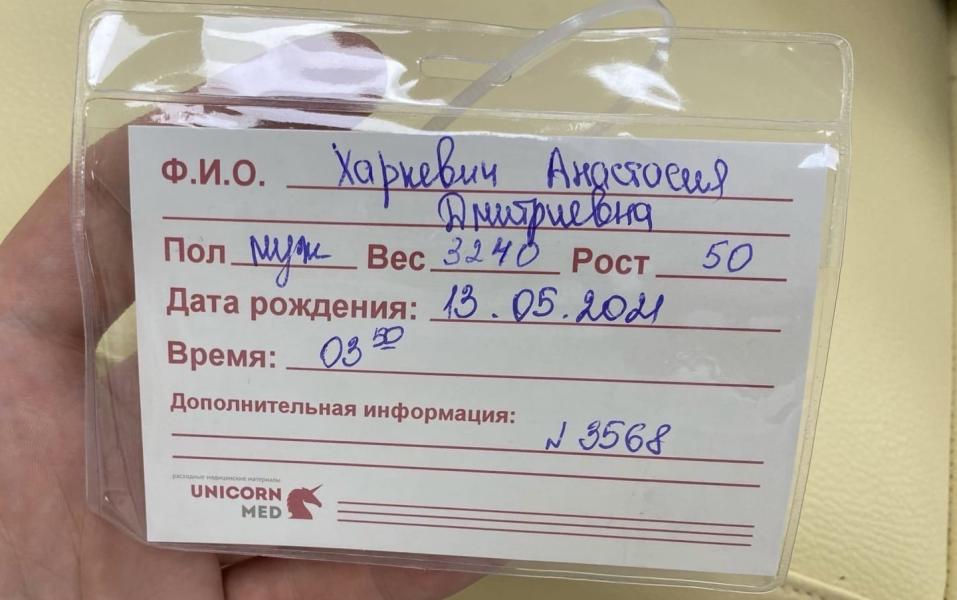 Ф.И.О. Харкевич Анастасия
Дмитриевна
Пол муж Вес 3240 Рост 50
Дата рождения: 13.05.2021
Время: 03 50
Дополнительная информация:
N 3568
расходные медицинские материалы
UNICORN
MED